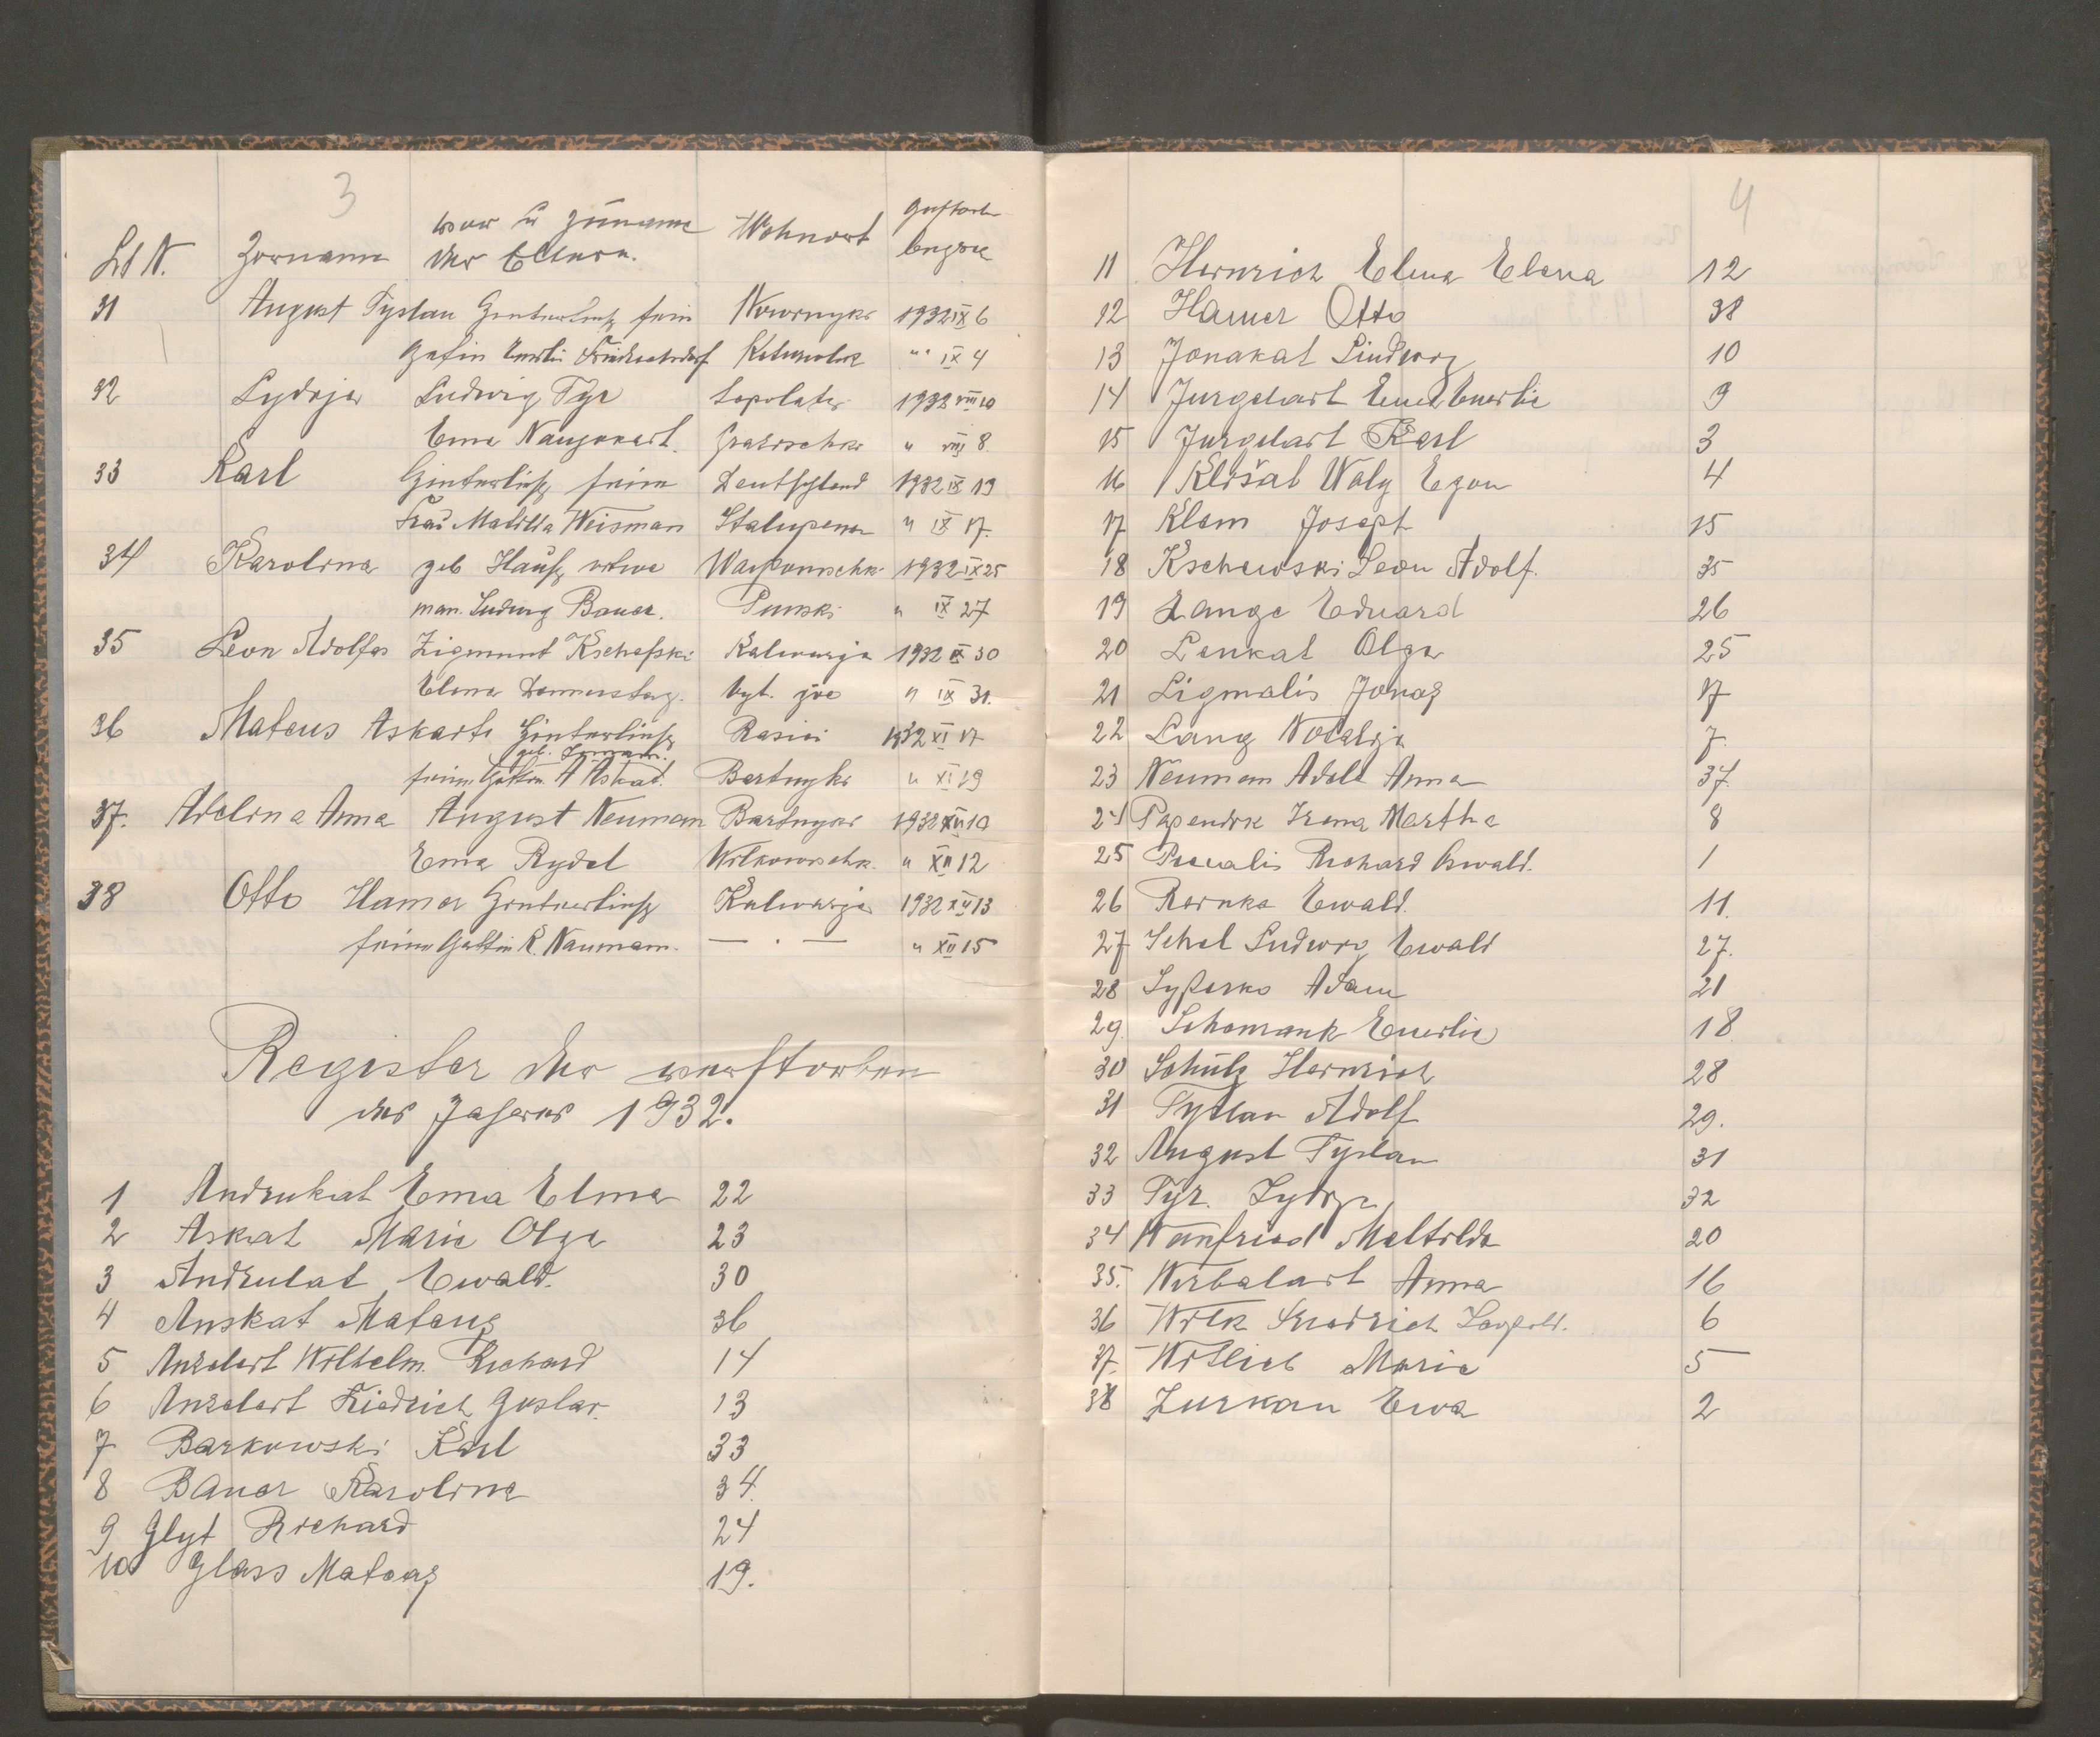 3
Ld N. Vorname vor u Zuname der Eltern. Wohnort gestorben begra
31 August Tystan Hinterließ sein 1932 IX 6
" IX 4
32 Lydija Ludwig Tyr 1932 VIII 10
Ema Naujokart. " VIII 8.
33 Karl Hinterließ seine Deutschland 1932 IX 19
Frau Matilda Weisman Stalupenen " IX 17.
34 Karolina geb Hauß witwe 1932 IX 25
man. Ludwig Bauer. Punski " IX 27
35 Leon Adolfas Zigmunt Kschefski Kalwarja 1932 IX 30
Elena Donnerstag. Vyt. " IX 31.
36 Mateus Askart Hinterließ Rasiai 1932 XI 17
geb.
seine Gattin A Askat. Bartnyki " XI 19
37. Adelina Anna August Neuman Bartnyki 1932 XII 10
Ema Rydel Wilkowischk. " XII 12
38 Otto Hamer Hinterließ Kalwarja 1932 XII 13
seine Gattin K. Naumann. — . — " XII 15
Register der verstorben
des Jahres 1932.
1 Andrukat Ema Elma 22
2 Askat Marie Olga 23
3 Andrulat Ewald. 30
4 Anskat Mateus 36
5 Anzelart Wilhelm Richard 14
6 Anzelart Fridrich Gustav. 13
7 Barkowski Karl 33
8 Bauer Karolina 34.
9 Glyt Richard 24
10 Glass Mateas 19.
4
11 Heinrich Elma Elena 12
12 Hamer Otto 38
13 Jonakat Ludwig 10
14 Jurgelart Emilie 9
15 Jurgelart Karl 3
16 Klišat Waly Egon 4
17 Klem Joseph 15
18 Kschewski Leon Adolf. 35
19 Lange Eduard 26
20 Lenkat Olga 25
21 Ligmalis Jonas 17
22 Lang Natalija 7.
23 Neuman Adele Anna 37.
24 Papendik Irena Martha 8
25 Richard Oswald. 1
26 Reinke Ewald. 11.
27 Schel Ludwig Ewald 27.
28 Adam 21
29. Emilie 18.
30 Schulz Heinrich 28
31 Tystan Adolf 29.
32 August Tystan 31
33 Tyr. Lydija 32
34 Wanfried Meltilda 20
35. Wirbelart Anna 16
36 Wilk Friedrich Leopold. 6
37. Witlieb Marie 5
38 Zurkan Ewa 2